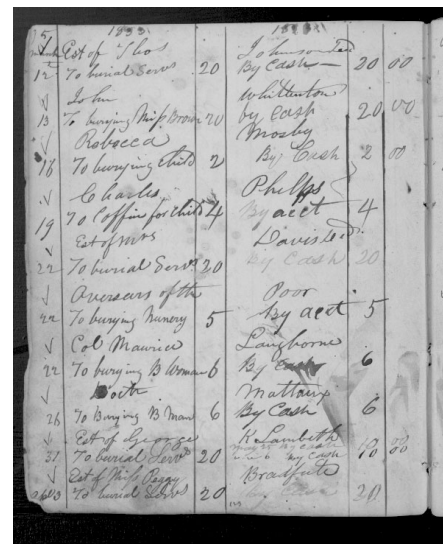 1833 1833
Est of Thos Johnson Decd
12 To burial Servs 20 By Cash 20 00
John Whittenton
13 To burying Miss Brown 20 by Cash 20 00
Rebecca Mosby
16 To burying Child 2 By Cash 2 00
Charles Phelps
19 To Coffins for Child 4 By acct 4
Est of Mrs Davis Decd
22 To burial Servs 20 By Cash 20
Overseers of the Poor
22 To burying 5 by acct 5
Col Maurice Langhorne
22 To burying B Woman 6 By 6
Mattaux
26 To Burying B Man 6 By Cash 6
Est of George Lambeth
31 To burial Servs 20 by Cash 10 00
Est of Miss Peggy Bradfute
To burial Servs 20 20